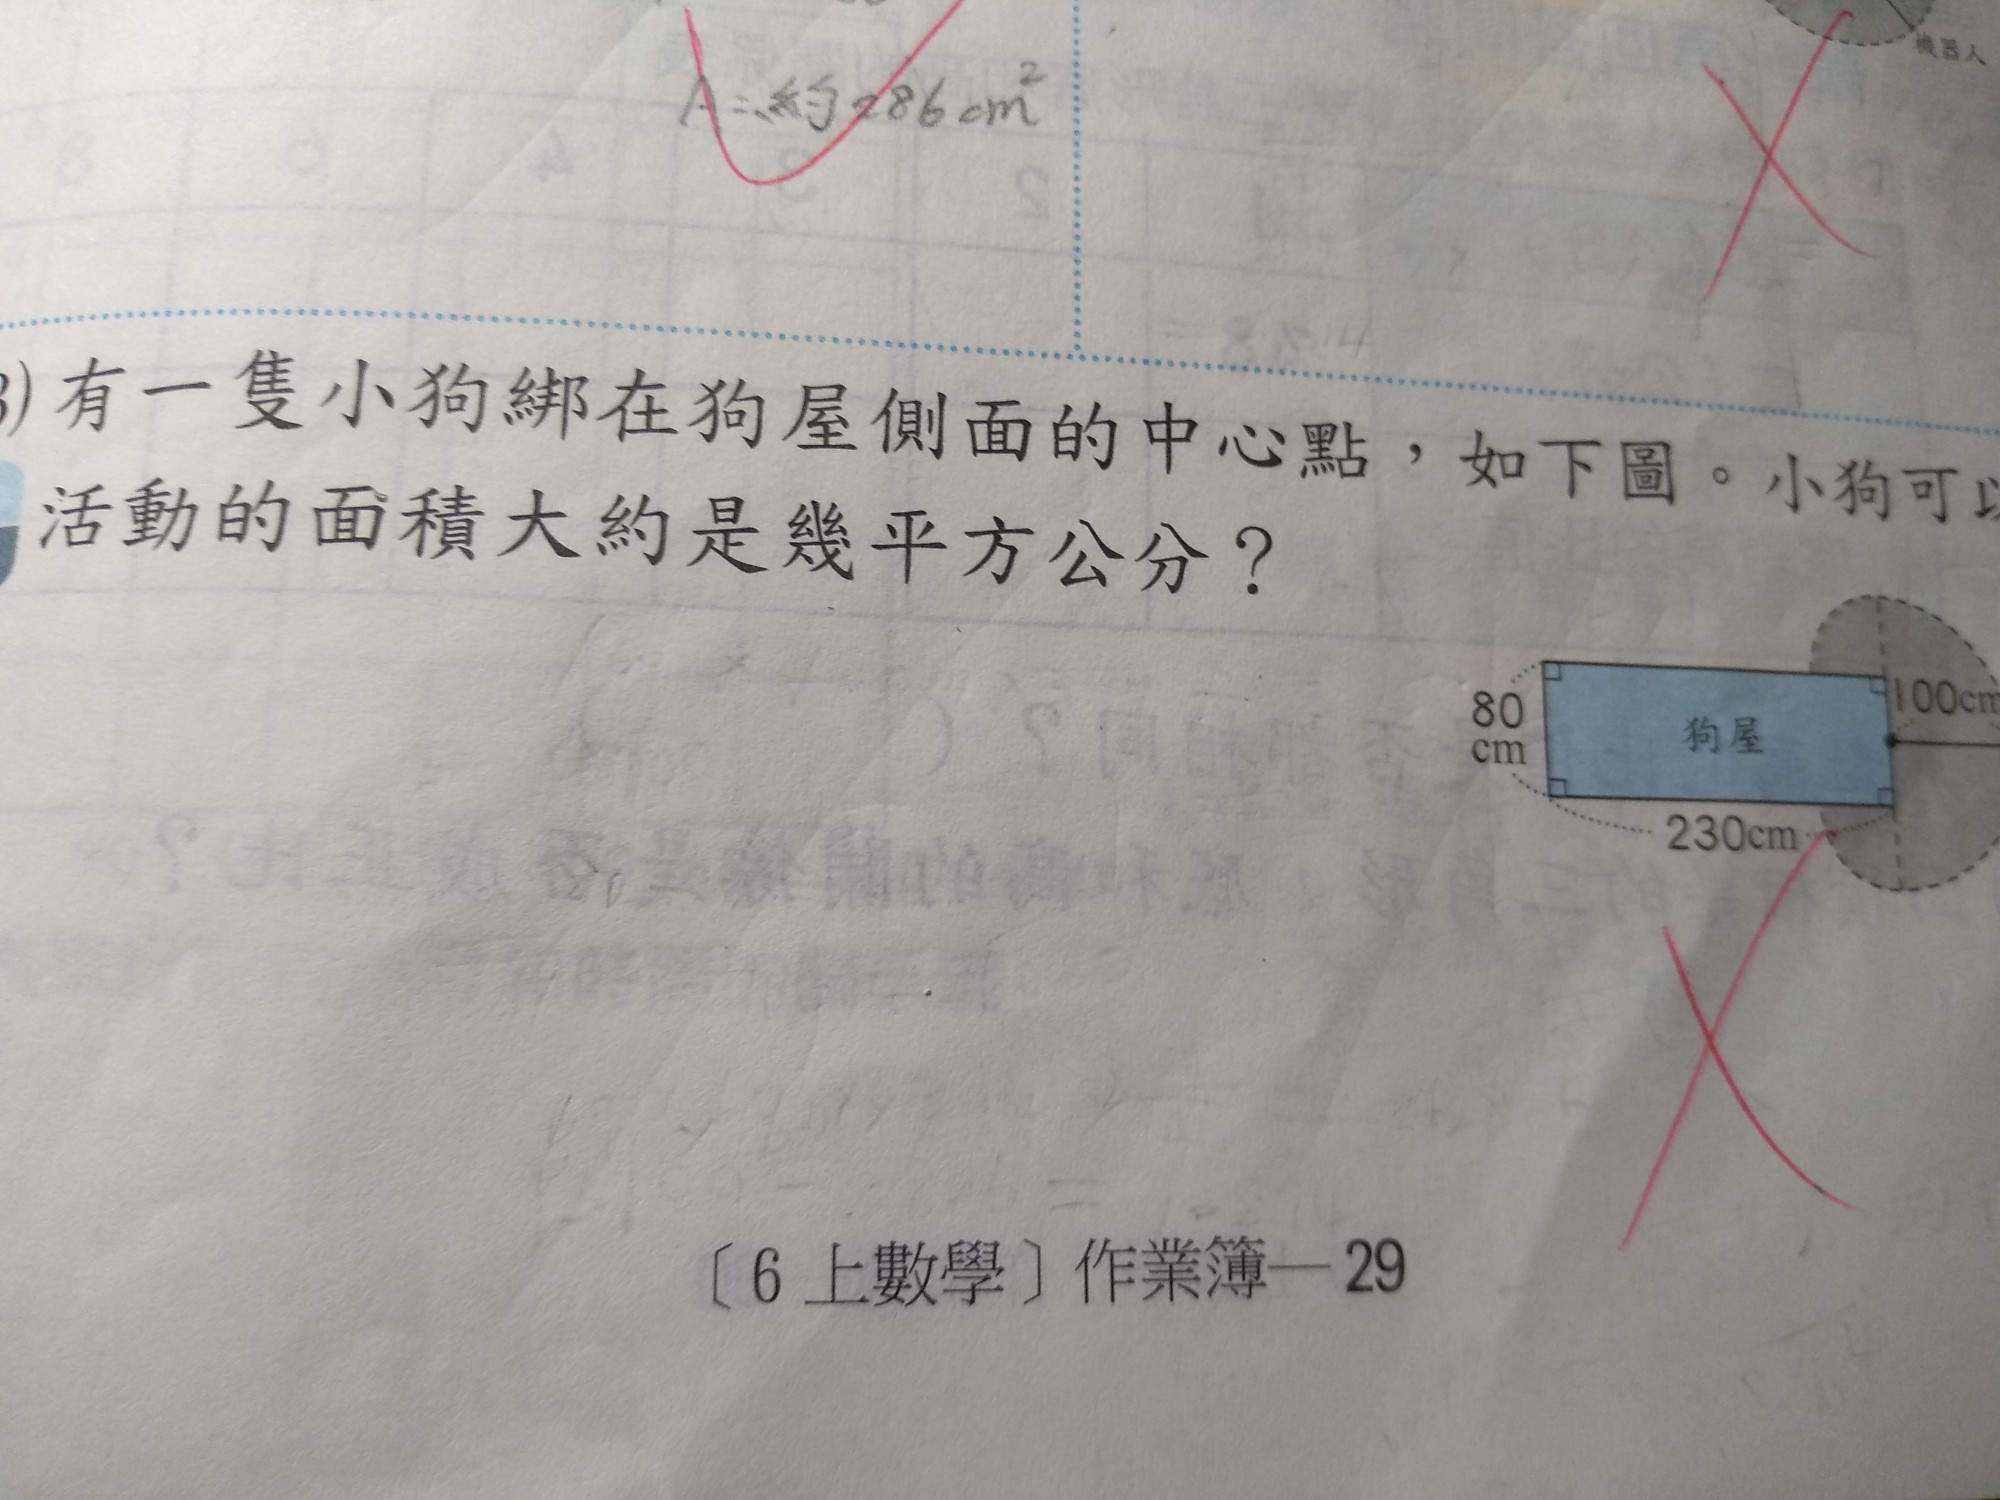 機器人
A=約286cm²
3)有一隻小狗綁在狗屋側面的中心點，如下圖。小狗可以
活動的面積大約是幾平方公分？
80
cm
狗屋
100cm
230cm
〔6上數學〕作業簿—29